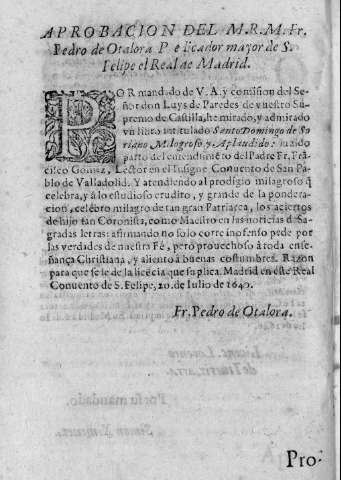 APROBACION DEL M.R.M. Fr.
Pedro de Otalora P e icador mayor de S.
Felipe el Real de Madrid.
POR mandado de V. A. y comision del Se
ñor don Luys de Paredes de vuestro Su
premo de Castilla, he mirado, y admirado
vn libro intitulado Santo Domingo de So
riano Milagroso, y Aplaudido: luzido
parto del entendimiẽto del Padre Fr, Frã
cisco Gomez, Lector en el Insigne Conuento de San Pa
blo de Valladolid. Y atendiendo al prodigio milagroso q̃
celebra, y à lo estudioso erudito, y grande de la pondera
cion, celebro milagro de tan gran Patriarca, los aciertos
de hijo tan Coronista, como Maestro en las noticias d Sa
gradas letras: afirmando no solo corre inofenso pede por
las verdades de nuestra Fè, pero prouechoso à toda ense-
ñança Christiana, y aliento à buenas costumbres. Razon
para que se le de la licẽcia que suplica. Madrid en este Real
Conuento de S. Felipe, 20. de Iulio de 1640.
Fr. Pedro de Otalora.
Pro-